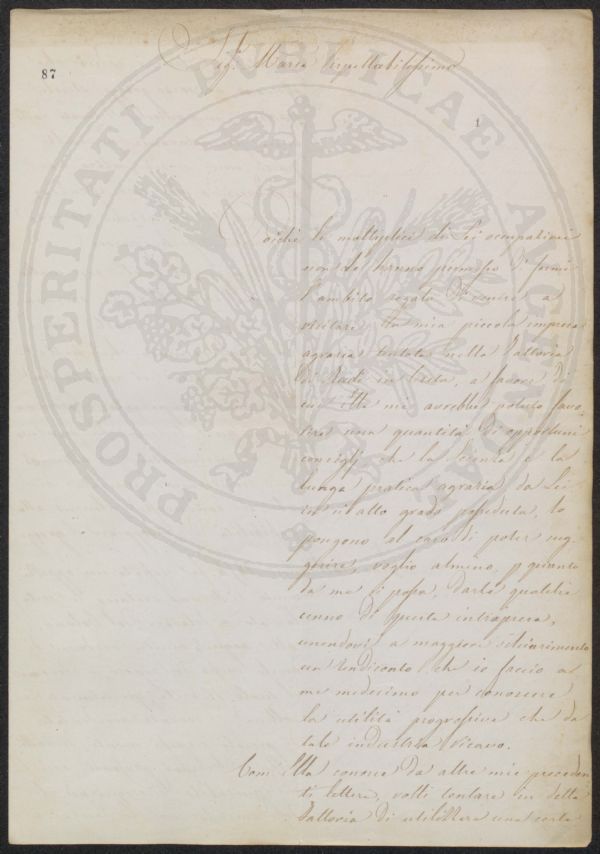 87
Sig.r Marie Pregiabilissimo
1
Poiche le molteplici di Lei occupazioni
non Le hanno permesso di farmi
l'ambito regalo di venire a
visitare la mia piccola impresa
agraria tentata nella Fattoria
di in Creta, a favore di
cui Ella mi avrebbe potuto favo
rire una quantità di opportuni
consigli che la Scienza e la
lunga pratica agraria da Lei
in sì alto grado posseduta, lo
pongono al caso di poter sug
gerire, voglio almeno, p quanto
da me si possa, darle qualche
cenno di questa intrapresa,
unendovi a maggiore schiarimento
un Rendiconto che io faccio a
me medesimo per conoscere
la utilità progressiva che da
tale industria ricavo.
Com Ella conosce da altre mie preceden
ti lettere, volli tentare in detta
Fattoria di utilizzare una certa
PROSPERITATI PUBLICAE AUGENDAE